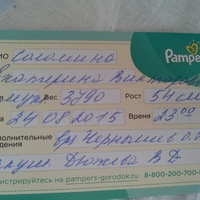 ИО Саломина
Pampers
Екатерина Викторовна
муж Вес 3790 Рост 54 см
а 24 08 2015 Время 23 00
полнительные вр Чернышев О.
дения
акуш. Дюжева В Д
истрируйтесь на pampers-gorodok.ru 8-800-200-700-